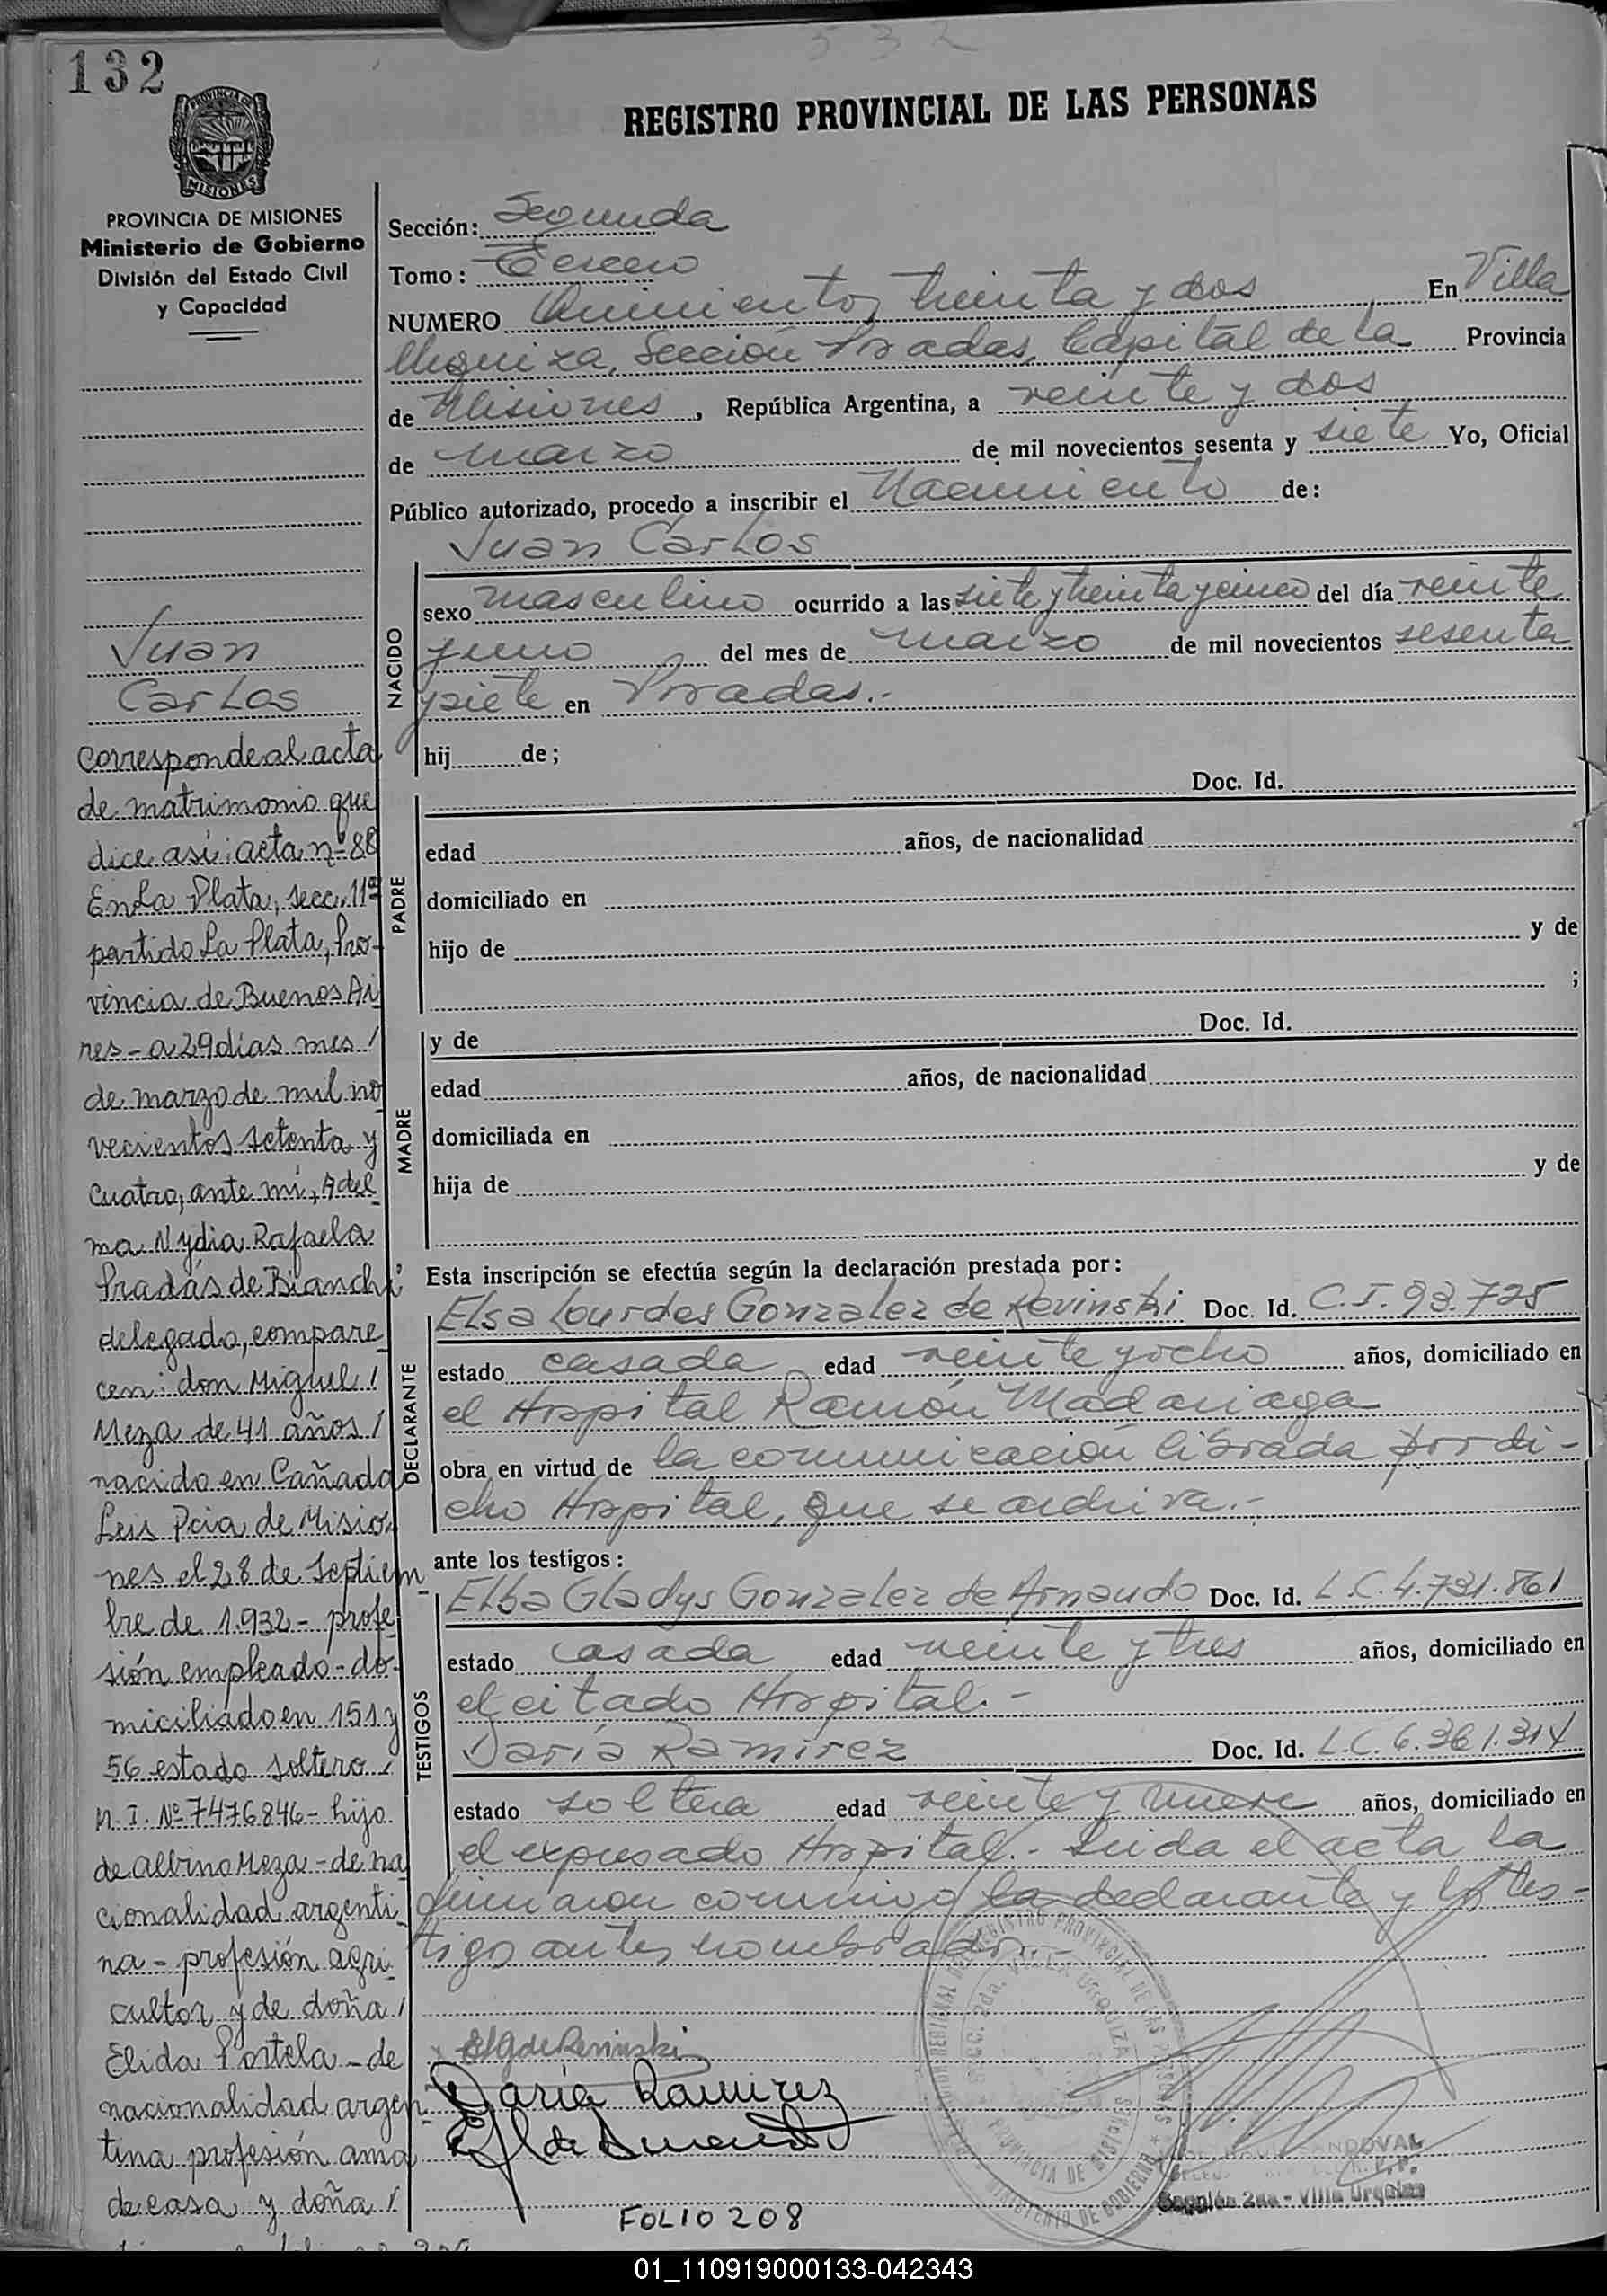 532
132
REGISTRO PROVINCIAL DE LAS PERSONAS
PROVINCIA DE MISIONES
PROVINCIA DE MISIONES
Ministerio de Gobierno
División del Estado Civil
y Capacidad
Juan
Carlos
corresponde al acta
de matrimonio que
dice asi: acta nº 88
En La Plata, secc. 11ª
partido La Plata, Pro-
vincia de Buenos Ai
res - a 29 dias mes /
de marzo de mil no
vecientos setenta y
cuatro, ante mi, Adel
ma Nydia Rafaela
Pradás de Bianchi
delegado, compare
cen: don Miguel /
Meza de 41 años /
nacido en Cañada
Leis Pcia de Misio
nes el 28 de Septiem
bre de 1.932 - profe
sión empleado - do-
miciliado en 151 y
56 estado soltero /
M. I. Nº 7476846 - hijo
de albino Meza - de na
cionalidad argenti
na - profesión agri
cultor y de doña /
Elida Portela - de
nacionalidad argen
tina profesión ama
de casa y doña /
Sección: Segunda
Tomo: Tercero
NUMERO Quinientos treinta y dos En Villa
Urquiza, Sección Posadas, Capital de la Provincia
de Misiones, República Argentina, a veinte y dos
de marzo de mil novecientos sesenta y siete Yo, Oficial
Público autorizado, procedo a inscribir el Nacimiento de:
Juan Carlos
NACIDO
sexo masculino ocurrido a las siete y treinta y cinco del día veinte
y uno del mes de marzo de mil novecientos sesenta
y siete en Posadas.-
hij de;
Doc. Id.
PADRE
edad años, de nacionalidad
domiciliado en
hijo de y de
;
y de Doc. Id.
MADRE
edad años, de nacionalidad
domiciliada en
hija de y de
Esta inscripción se efectúa según la declaración prestada por:
DECLARANTE
Elsa Lourdes Gonzalez de Revinski Doc. Id. C.I. 93.725
estado casada edad veinte y ocho años, domiciliado en
el Hospital Ramón Madariaga
obra en virtud de la comunicación librada por di-
cho Hospital, que se archiva.-
ante los testigos:
TESTIGOS
Elba Gladys Gonzalez de Arnaudo Doc. Id. L.C. 4.731.861
estado casada edad veinte y tres años, domiciliado en
el citado Hospital.-
Daría Ramirez Doc. Id. L.C. 6.361.314
estado soltera edad veinte y nueve años, domiciliado en
el expresado Hospital.- Leida el acta la
firmaron conmigo la declarante y los tes-
tigos antes nombrados.-
Daría Ramirez
REGISTRO PROVINCIAL DE LAS PERSONAS
Secc. 2da. VILLA URQUIZA
PROVINCIA DE MISIONES
MINISTERIO DE GOBIERNO
SANDOVAL
Sección 2da - Villa Urquiza
FOLIO 208
01_110919000133-042343